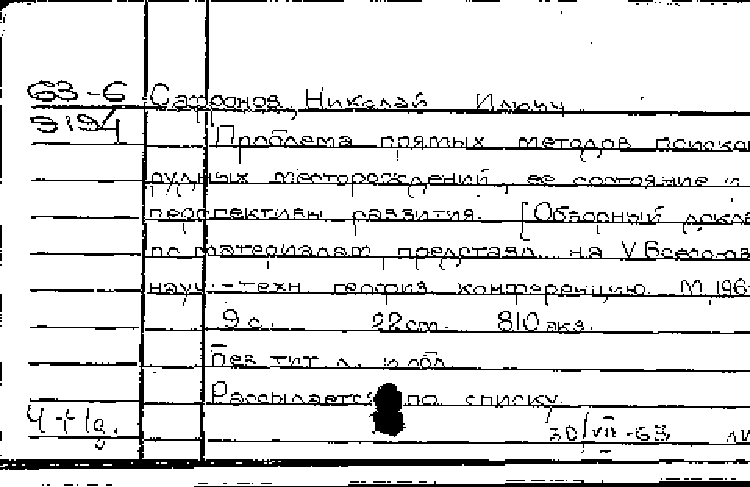 63-6 Сафронов, Николай Ильич
3194
Проблема прямых методов поисков
рудных месторождений, ее состояние и
перспективы развития. [Обзорный докла
по материалам представл. на V Всесоюз
науч.-техн. геофиз. конференцию. М 196
9 с. 22 см. 810 экз.
Без тит. л. и обл.
Рассылается по списку
4+1а.
30/VII-63